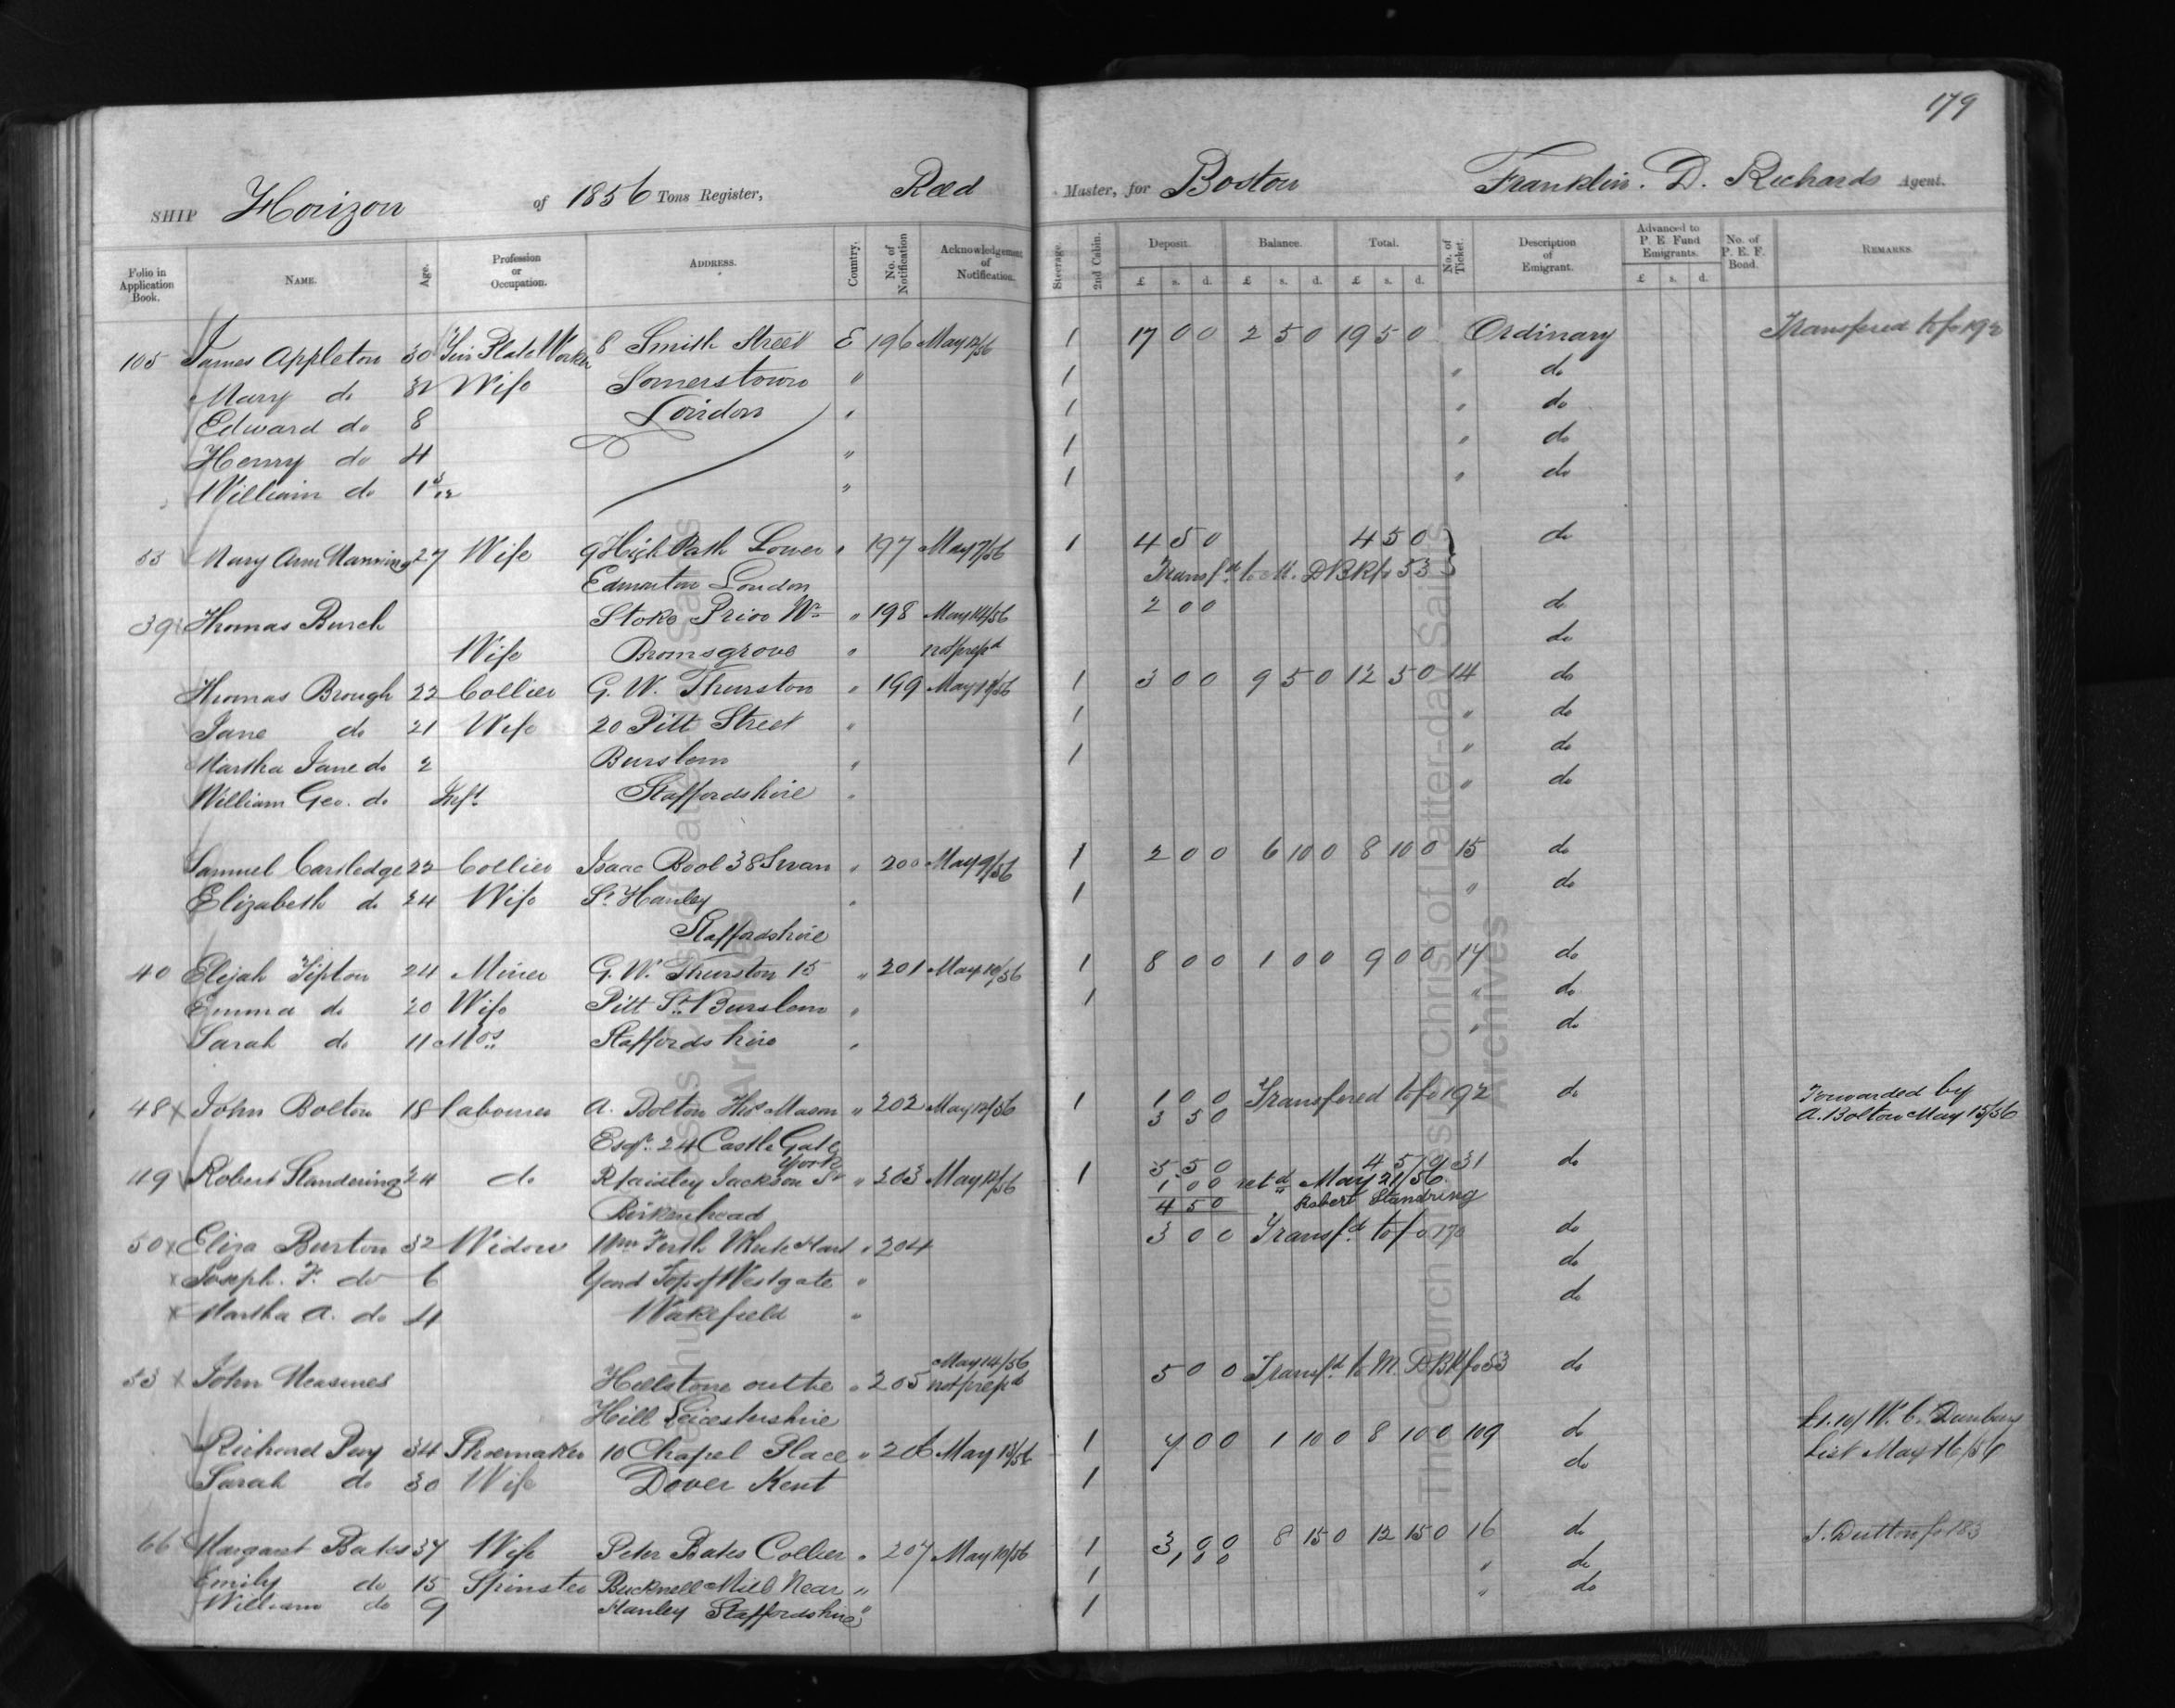 179
SHIP Horizon of 1856 Tons Register, Reed Master, for Boston Franklin. D. Richards Agent.
Folio in Application Book. NAME. Age. Profession or Occupation. ADDRESS. Country. No. of Notification Acknowledgement of Notification. Steerage. 2nd Cabin. Deposit. Balance. Total. No. of Ticket. Description of Emigrant. Advanced to P. E. Fund Emigrants. No. of P. E. F. Bond. REMARKS.
£ s. d. £ s. d. £ s. d. £ s. d.
105 James Appleton 30 Tin Plate Worker 8 Smith Street E 196 May 12/56 1 17 0 0 2 5 0 19 5 0 Ordinary Transfered to fo 192
Mary do 32 Wife Somerstown " 1 " do
Edward do 8 London " 1 " do
Henry do 4 " 1 " do
William do 1 " 1 " do
55 Mary Ann Manning 27 Wife 9 High Path Lower " 197 May 7/56 1 4 5 0 4 5 0 do
Edmonton London Transfd to M. DBk fo 53
39 x Thomas Burch Stoke Prior Wr " 198 May 14/56 2 0 0 do
Wife Bromsgrove " not prepd do
Thomas Brough 22 Collier G. W. Thurston " 199 1 3 0 0 9 5 0 12 5 0 14 do
Jane do 21 Wife 20 Pitt Street " 1 " do
Martha Jane do 2 Burslem " 1 " do
William Geo. do Inft Staffordshire " " do
Samuel Cartledge 22 Collier Isaac Bool 38 Swan " 200 May 9/56 1 2 0 0 6 10 0 8 10 0 15 do
Elizabeth do 24 Wife St Hanley " 1 " do
Staffordshire
40 Elijah Tipton 24 Miner G. W. Thurston 15 " 201 May 10/56 1 8 0 0 1 0 0 9 0 0 14 do
Emma do 20 Wife Pitt St Burslem " 1 " do
Sarah do 11 Mos Staffordshire " " do
48 x John Bolton 18 Labourer A. Bolton Mason " 202 May 12/56 1 1 0 0 Transfered to fo 192 do Forwarded by
3 5 0 A. Bolton May 15/56
Esqr. 24 Castle Gate
York
49 Robert Standering 24 do Jackson St " 203 May 12/56 1 5 5 0 4 5 0 31 do
1 0 0 retd May 21/56.
Birkenhead 4 5 0 Robert Standring
50 x Eliza Burton 32 Widow Wm Firth White Hart " 204 3 0 0 Transfd to fo 170 do
x Joseph. F. do 6 Yard Top of Westgate " do
x Martha A. do 4 Wakefield " do
May 14/56
53 x John Measures Hellstone on the " 205 not prepd 5 0 0 Transfd to M. DBk fo 53 do
Hill Leicestershire
Richard Pay 34 Shoemaker 10 Chapel Place " 206 May 13/56 1 7 0 0 1 10 0 8 10 0 109 do £1.10/ W. C. Dunbury
Sarah do 30 Wife Dover Kent 1 do List May 16/56
66 Margaret Bates 37 Wife Peter Bates Collier " 207 May 10/56 1 3, 0 0 8 15 0 12 15 0 16 do J. Dutton fo 183
Emily do 15 Spinster Bucknell Mill Near " 1 " do
William do 9 Hanley Staffordshire " 1 " do
The Church of Jesus Christ of Latter-day Saints
Archives